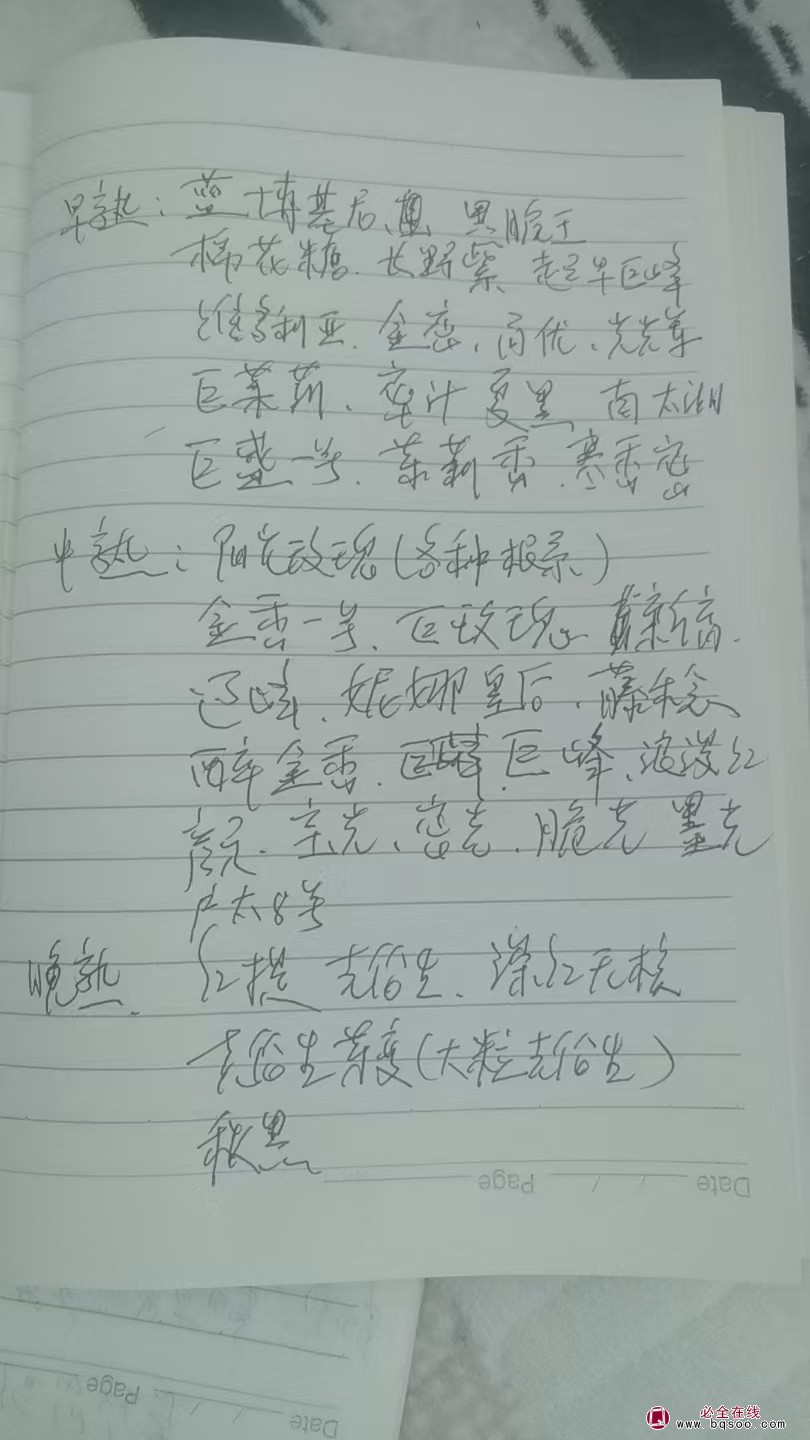 早熟：蓝博基尼、黑脆王
棉花糖、长野紫、超早巨峰
维多利亚、金密、尚优、光
巨茉莉、蜜汁夏黑、南太湖
巨盛一号、茉莉香、寒香蜜
中熟：阳光玫瑰（各种根系）
金香一号、巨玫瑰、黄金蜜
妮娜皇后、藤稔
醉金香、巨峰、浪漫红
颜、京光、蜜光、脆光、墨光
户太8号
晚熟、红提、克伦生、深红无核
克伦生芽变（大粒克伦生）
秋黑
Date / / Page
Date / / Page
必全在线
www.bqsoo.com